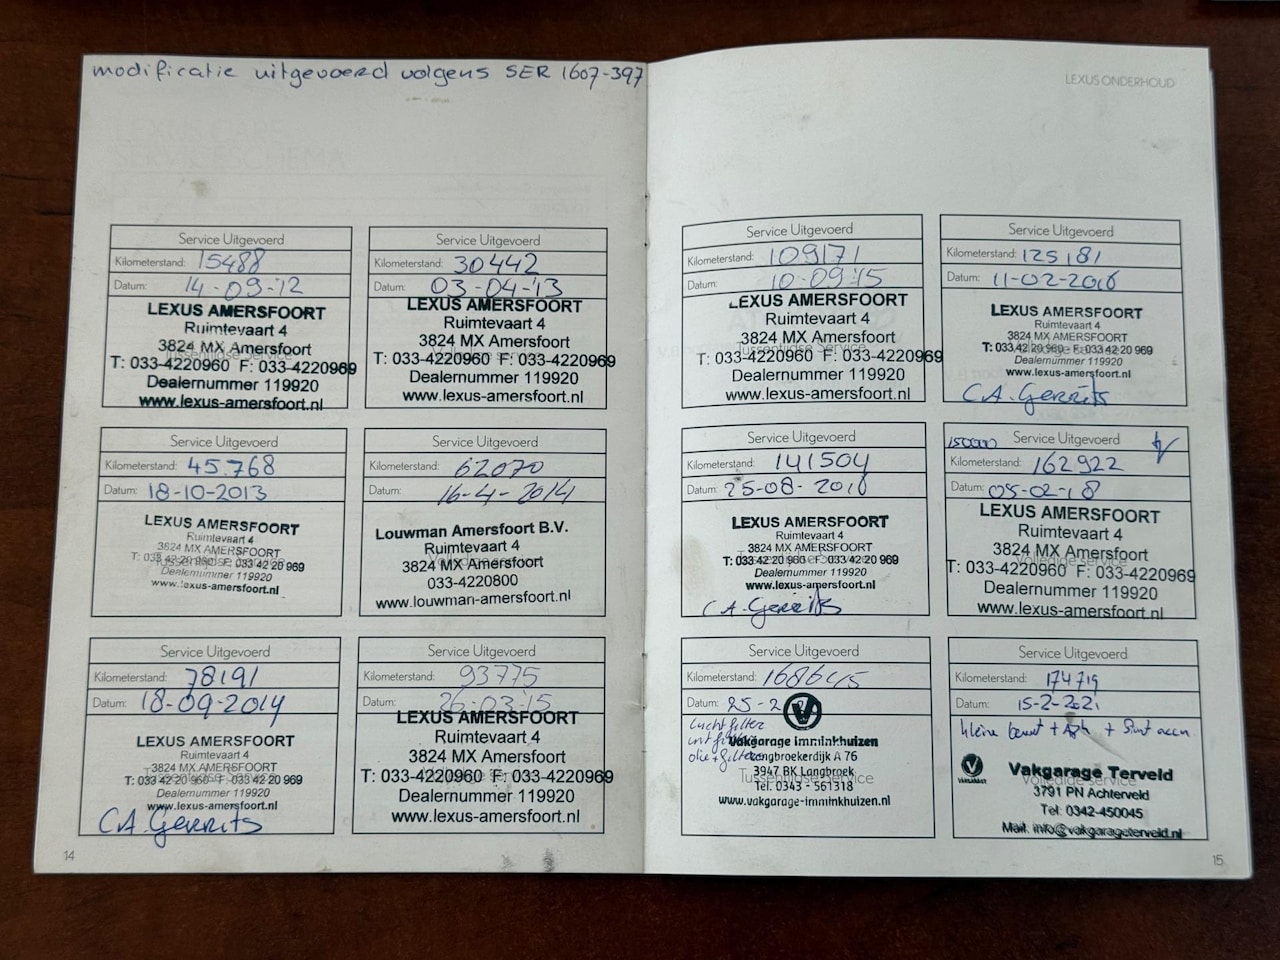 modificatie uitgevoerd volgens SER 1607-397
Service Uitgevoerd
Kilometerstand: 15488
Datum: 14-09-12
LEXUS AMERSFOORT
Ruimtevaart 4
3824 MX Amersfoort
Tussentijdse Service
T: 033-4220960 F: 033-4220969
Dealernummer 119920
www.lexus-amersfoort.nl
Service Uitgevoerd
Kilometerstand: 30442
Datum: 03-04-'13
LEXUS AMERSFOORT
Ruimtevaart 4
3824 MX Amersfoort
T: 033-4220960 F: 033-4220969
Dealernummer 119920
www.lexus-amersfoort.nl
Service Uitgevoerd
Kilometerstand: 45.768
Datum: 18-10-2013
LEXUS AMERSFOORT
Ruimtevaart 4
3824 MX AMERSFOORT
T: 033 42 20 960 F: 033 42 20 969
Dealernummer 119920
www.lexus-amersfoort.nl
Service Uitgevoerd
Kilometerstand: 62070
Datum: 16-4-2014
Louwman Amersfoort B.V.
Ruimtevaart 4
3824 MX Amersfoort
033-4220800
www.louwman-amersfoort.nl
Service Uitgevoerd
Kilometerstand: 78191
Datum: 18-09-2014
LEXUS AMERSFOORT
Ruimtevaart 4
3824 MX AMERSFOORT
T: 033 42 20 960 F: 033 42 20 969
Dealernummer 119920
www.lexus-amersfoort.nl
C.A. Gerrits
Service Uitgevoerd
Kilometerstand: 93775
Datum: 26-03-'15
LEXUS AMERSFOORT
Ruimtevaart 4
3824 MX Amersfoort
T: 033-4220960 F: 033-4220969
Dealernummer 119920
www.lexus-amersfoort.nl
14
LEXUS ONDERHOUD
Service Uitgevoerd
Kilometerstand: 109171
Datum: 10-09-'15
LEXUS AMERSFOORT
Ruimtevaart 4
3824 MX Amersfoort
Tussentijdse Service
T: 033-4220960 F: 033-4220969
Dealernummer 119920
www.lexus-amersfoort.nl
Service Uitgevoerd
Kilometerstand: 125181
Datum: 11-02-2016
LEXUS AMERSFOORT
Ruimtevaart 4
3824 MX AMERSFOORT
T: 033 42 20 960 F: 033 42 20 969
Dealernummer 119920
www.lexus-amersfoort.nl
C.A. Gerrits
Service Uitgevoerd
Kilometerstand: 141504
Datum: 25-08-2016
LEXUS AMERSFOORT
Ruimtevaart 4
3824 MX AMERSFOORT
T: 033 42 20 960 F: 033 42 20 969
Dealernummer 119920
www.lexus-amersfoort.nl
C.A. Gerrits
150000 Service Uitgevoerd
Kilometerstand: 162922
Datum: 05-02-18
LEXUS AMERSFOORT
Ruimtevaart 4
3824 MX Amersfoort
Volledige Service
T: 033-4220960 F: 033-4220969
Dealernummer 119920
www.lexus-amersfoort.nl
Service Uitgevoerd
Kilometerstand: 168645
Datum: 25-2
luchtfilter
oliefilter
Vakgarage Imminkhuizen
Langbroekerdijk A 76
3947 BK Langbroek
Tussentijdse Service
Tel. 0343 - 561318
www.vakgarage-imminkhuizen.nl
Service Uitgevoerd
Kilometerstand: 174719
Datum: 15-2-2021
kleine beurt + Apk +
VAKGARAGE
Vakgarage Terveld
Volledige Service
3791 PN Achterveld
Tel: 0342-450045
Mail: info@vakgarageterveld.nl
15